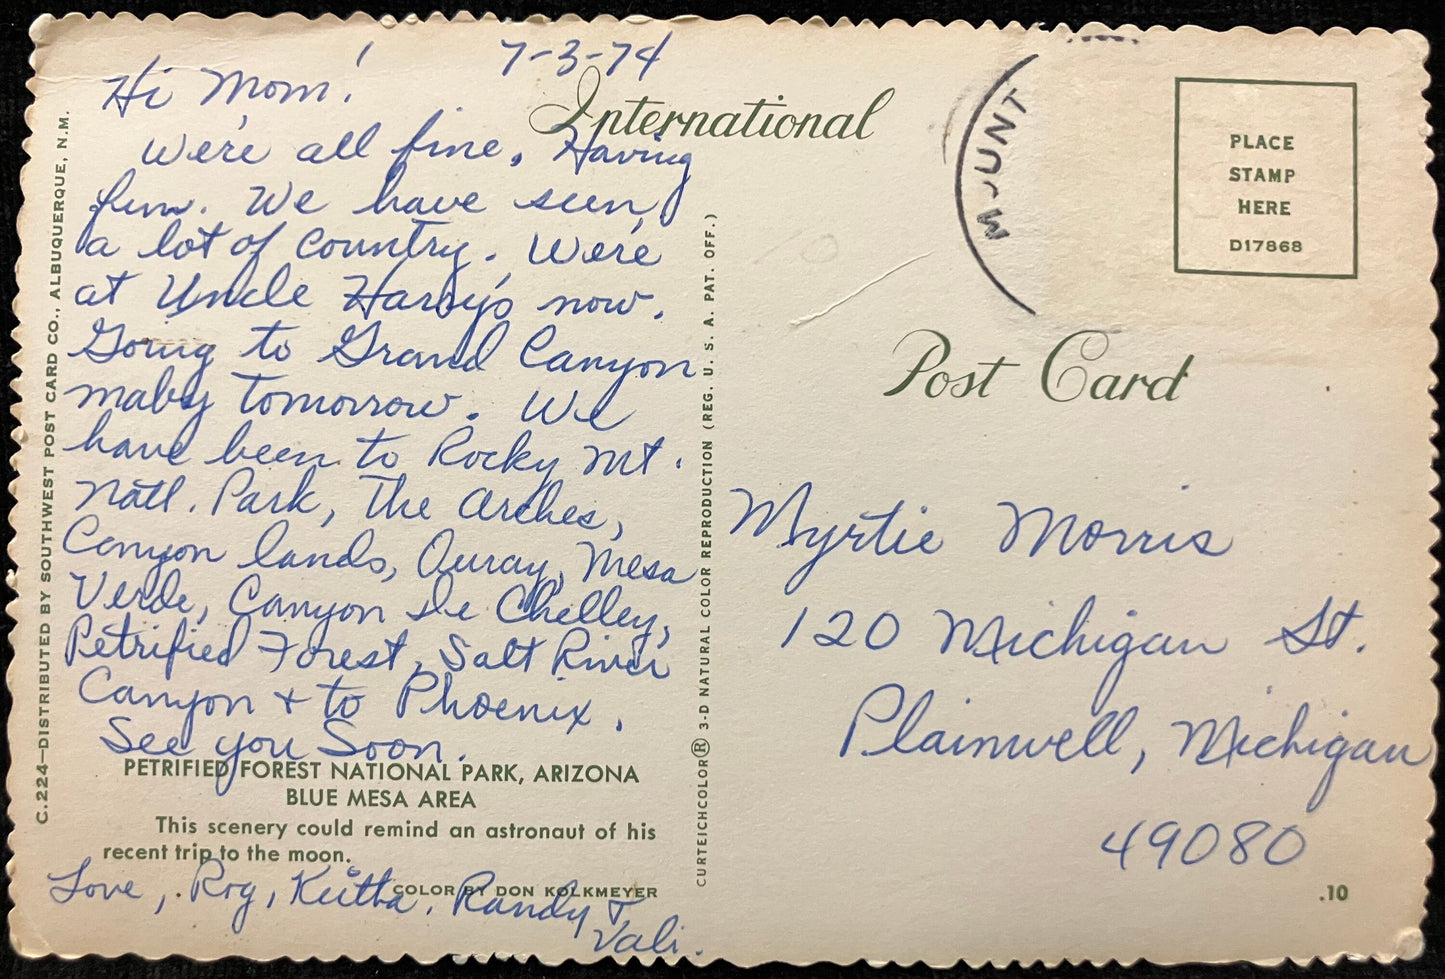 7-3-74
Hi Mom!
We're all fine, Having
fun. We have seen
a lot of country. We're
at Uncle Harry's now.
Going to Grand Canyon
maby tomorrow. We
have been to Rocky Mt.
Natl. Park, The Arches,
Canyon lands, Ouray, Mesa
Verde, Canyon De Chelley,
Petrified Forest, Salt River
Canyon + to Phoenix.
See you Soon.
PETRIFIED FOREST NATIONAL PARK, ARIZONA
BLUE MESA AREA
This scenery could remind an astronaut of his
recent trip to the moon.
COLOR BY DON KOLKMEYER
Love, Rog, Keitha, Randy +
Vali.
C.224—DISTRIBUTED BY SOUTHWEST POST CARD CO., ALBUQUERQUE, N.M.
CURTEICHCOLOR® 3-D NATURAL COLOR REPRODUCTION (REG. U. S. A. PAT. OFF.)
International
Post Card
MOUNT
PLACE
STAMP
HERE
D17868
Myrtie Morris
120 Michigan St.
Plainwell, Michigan
49080
.10